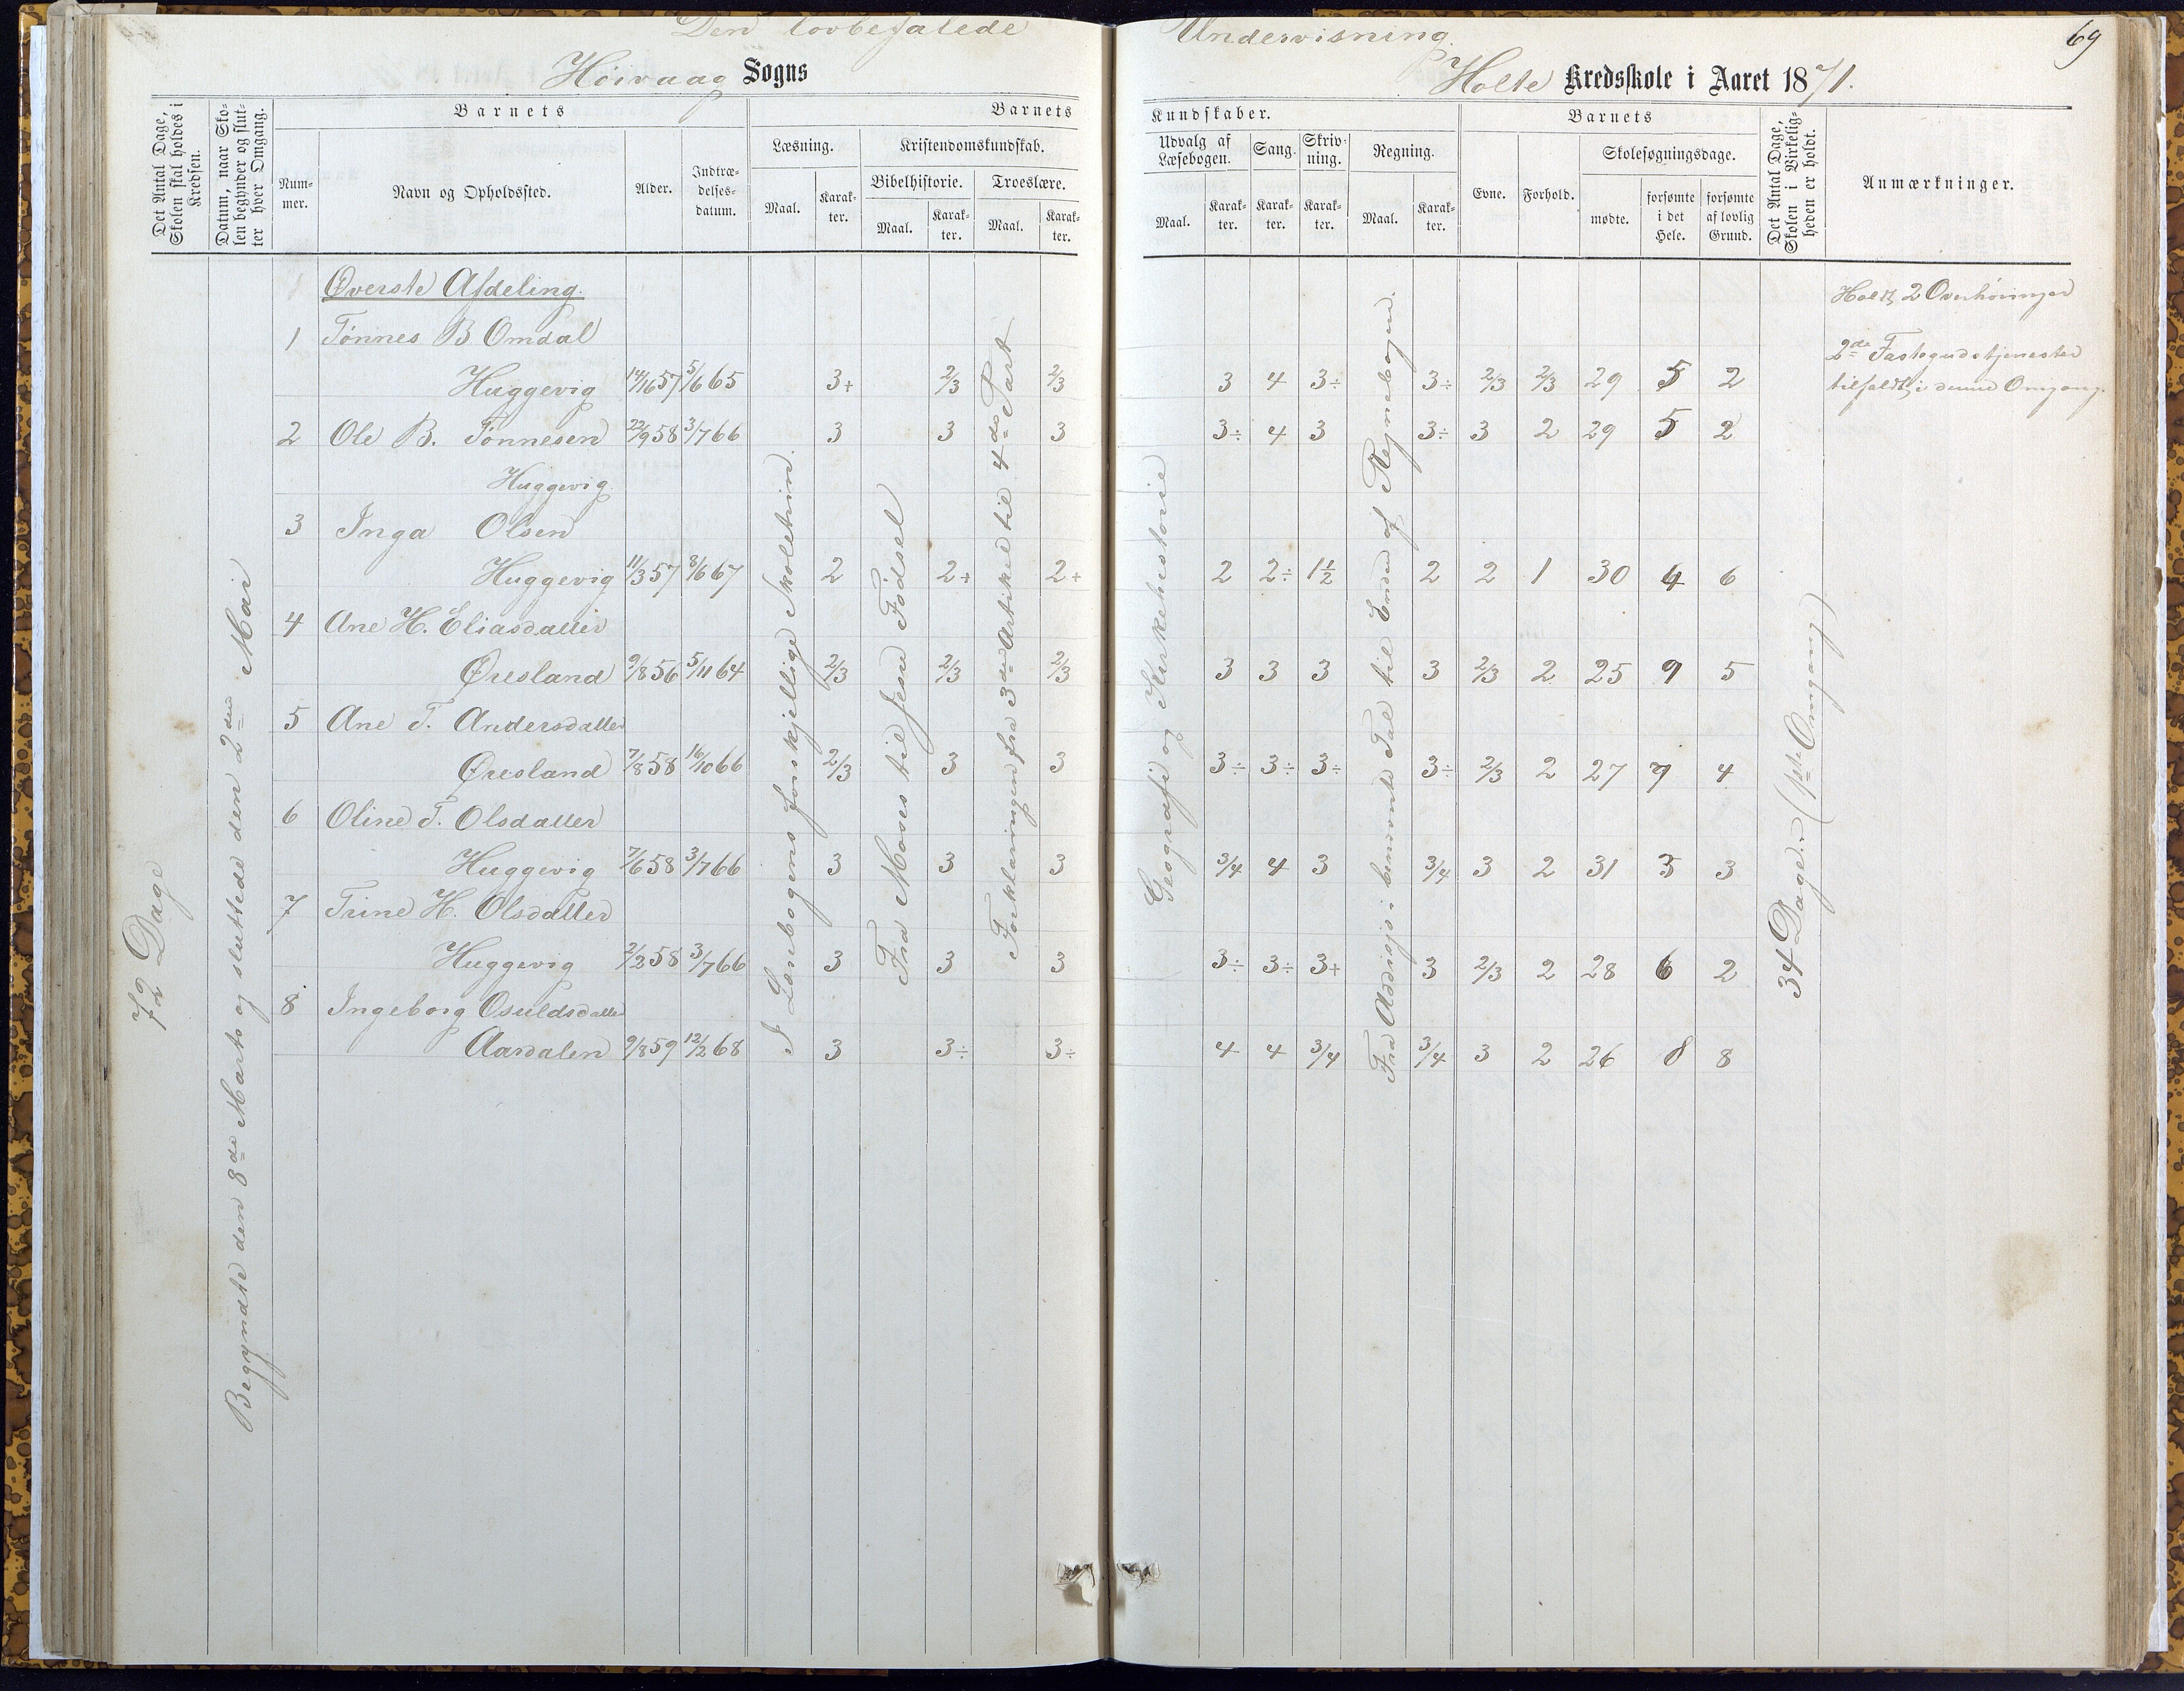 Den lovbefalede Undervisning.
69
Høivaag Sogns
Holte Kredsskole i Aaret 1871.
Det Antal Dage, Skolen skal holdes i Kredsen.
Datum, naar Skolen begynder og slutter hver Omgang.
Barnets
Nummer.
Navn og Opholdssted.
Alder.
Indtrædelsesdatum.
Barnets
Læsning.
Maal.
Karakter.
Kristendomskundskab.
Bibelhistorie.
Maal.
Karakter.
Troeslære.
Maal.
Karakter.
Kundskaber.
Udvalg af Læsebogen.
Maal.
Karakter.
Sang.
Karakter.
Skrivning.
Karakter.
Regning.
Maal.
Karakter.
Barnets
Evne.
Forhold.
Skolesøgningsdage.
mødte.
forsømte i det Hele.
forsømte af lovlig Grund.
Det Antal Dage, Skolen i Virkeligheden er holdt.
Anmærkninger.
72 Dage
Begyndte den 8de Marts og sluttede den 2den Mai
I Læsebogens forskjellige Skoletrin.
Fra Moses til Jesu Fødsel
Forklaringen fra 3die Artikel til 4de Part
Geografi og Kirkehistorie
Fra Addisjo i benævnte Tal til Enden af Regnebogen.
34 Dage. (1ste Omgang)
Øverste Afdeling.
Holdt 2 Overhøringer
1 Tønnes B Omdal
2de Fastegudstjenester
Huggevig 14/1657 5/665 3+ 2/3 2/3 3 4 3÷ 3÷ 2/3 2/3 29 5 2
tilfaldt i denne Omgang.
2 Ole B. Tønnesen 22/958 3/766 3 3 3 3÷ 4 3 3÷ 3 2 29 5 2
Huggevig.
3 Inga Olsen
Huggevig 11/357 8/667 2 2+ 2+ 2 2÷ 1½ 2 2 1 30 4 6
4 Ane H. Eliasdatter
Øresland 9/856 5/1164 2/3 2/3 2/3 3 3 3 3 2/3 2 25 9 5
5 Ane T. Andersdatter
Øresland 7/858 16/1066 2/3 3 3 3÷ 3÷ 3÷ 3÷ 2/3 2 27 7 4
6 Oline T. Olsdatter
Huggevig 7/658 3/766 3 3 3 3/4 4 3 3/4 3 2 31 3 3
7 Trine H. Olsdatter
Huggevig 2/258 3/766 3 3 3 3÷ 3÷ 3+ 3 2/3 2 28 6 2
8 Ingeborg Osuldsdatter
Aardalen 9/859 12/268 3 3÷ 3÷ 4 4 3/4 3/4 3 2 26 8 8